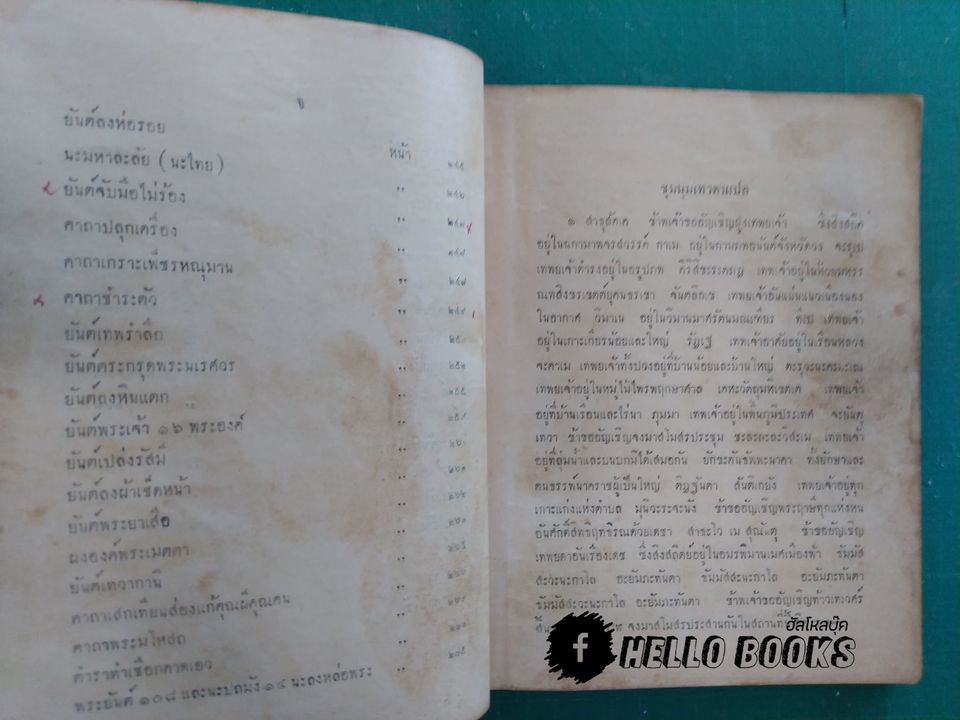 ข
ยันต์ลงห่อรอย
นะมหาละลัย (นะไทย) หน้า ๒๔๕
ยันต์จับมือไม่ร้อง ,, ๒๔๖
คาถาปลุกเครื่อง ,, ๒๔๗
คาถาเกราะเพ็ชรหณุมาน ,, ๒๔๗
คาถาชำระตัว ,, ๒๔๘
ยันต์เทพรำลึก ,, ๒๔๙
ยันต์ตระกรุดพระนเรศวร ,, ๒๕๐
ยันต์ลงหินแตก ,, ๒๕๒
ยันต์พระเจ้า ๑๖ พระองค์ ,, ๒๕๕
ยันต์เปล่งรัสมี ,, ๒๕๙
ยันต์ลงผ้าเช็ดหน้า ,,
ยันต์พระยาเสือ ,,
ผงองค์พระเมตตา ,,
ยันต์เทวากานิ ,,
คาถาเสกเทียนส่องแก้คุณผีคุณคน ,,
คาถาพระมโหสถ ,,
ตำราทำเชือกคาดเอว ,, ๒๘๕
พระยันต์ ๑๐๘ และนะปถมัง ๑๔ นะลงหล่อพระ
ชุมนุมเทวดาแปล
๑ สาธุสัคเค ข้าพเจ้าขออัญเชิญฝูงเทพยเจ้า ซึ่งสิงสถิตย์
อยู่ในฉกามาพจรสวรรค์ กาเม อยู่ในกามภพอนันต์จังหวัดวง จะรูเป
เทพยเจ้าดำรงอยู่ในอรูปภพ คีริสิขะระตะเฏ เทพเจ้าอยู่ในห้วยมหรร
ณพสิงขรเขตต์ยุคนธรเขา จันตลิกเข เทพยเจ้าอันแน่นแนวเนืองนอง
ในอากาศ วิมาเน อยู่ในวิมานมาศรัตนมณเฑียร ทีเป เทพยเจ้า
อยู่ในเกาะเกียรน้อยและใหญ่ รัฏเฐ เทพเจ้าอาศัยอยู่ในเรือนหลวง
จะคาเม เทพยเจ้าทั้งปวงอยู่ที่บ้านน้อยและบ้านใหญ่ ตะรุวะนะคะหะเณ
เทพยเจ้าอยู่ในหมู่ไม้ไพรพฤกษาศาล เคหะวัตถุมหิเขตเต เทพยเจ้า
อยู่ที่บ้านเรือนและไร่นา ภุมมา เทพเจ้าอยู่ในพื้นภูมิประเทศ จะยันตุ
เทวา ข้าขออัญเชิญจงมาสโมสรประชุม ชะละถะละวิสะเม เทพยเจ้า
อยู่ที่ลุ่มน้ำและบนบกมิได้เสมอกัน ยักขะคันธัพพะนาคา ทั้งยักษาและ
คนธรรพ์นาคราชผู้เป็นใหญ่ ติฏฐันตา สันติเกยัง เทพยเจ้าอยู่ทุก
เกาะแก่งแห่งตำบล มุนิวะระวะจะนัง ข้าขออัญเชิญพระฤๅษีทุกแห่งหน
อันศักดิ์สิทธิฤทธิรณด้วยเดชา สาธะโว เม สุณันตุ ข้าขออัญเชิญ
เทพยดาอันเรืองเดช ซึ่งสิงสถิตย์อยู่ในอมรพิมานเมศเมืองฟ้า ธัมมัส
สะวะนะกาโล อะยัมภะทันตา ธัมมัสสะวะนะกาโล อะยัมภะทันตา
ธัมมัสสะวะนะกาโล อะยัมภะทันตา ข้าพเจ้าขออัญเชิญท้าวเทเวศร์
จงมาสโมสรประสานกันในสถานที่นี้
ฮัลโหลบุ๊ค
f HELLO BOOKS